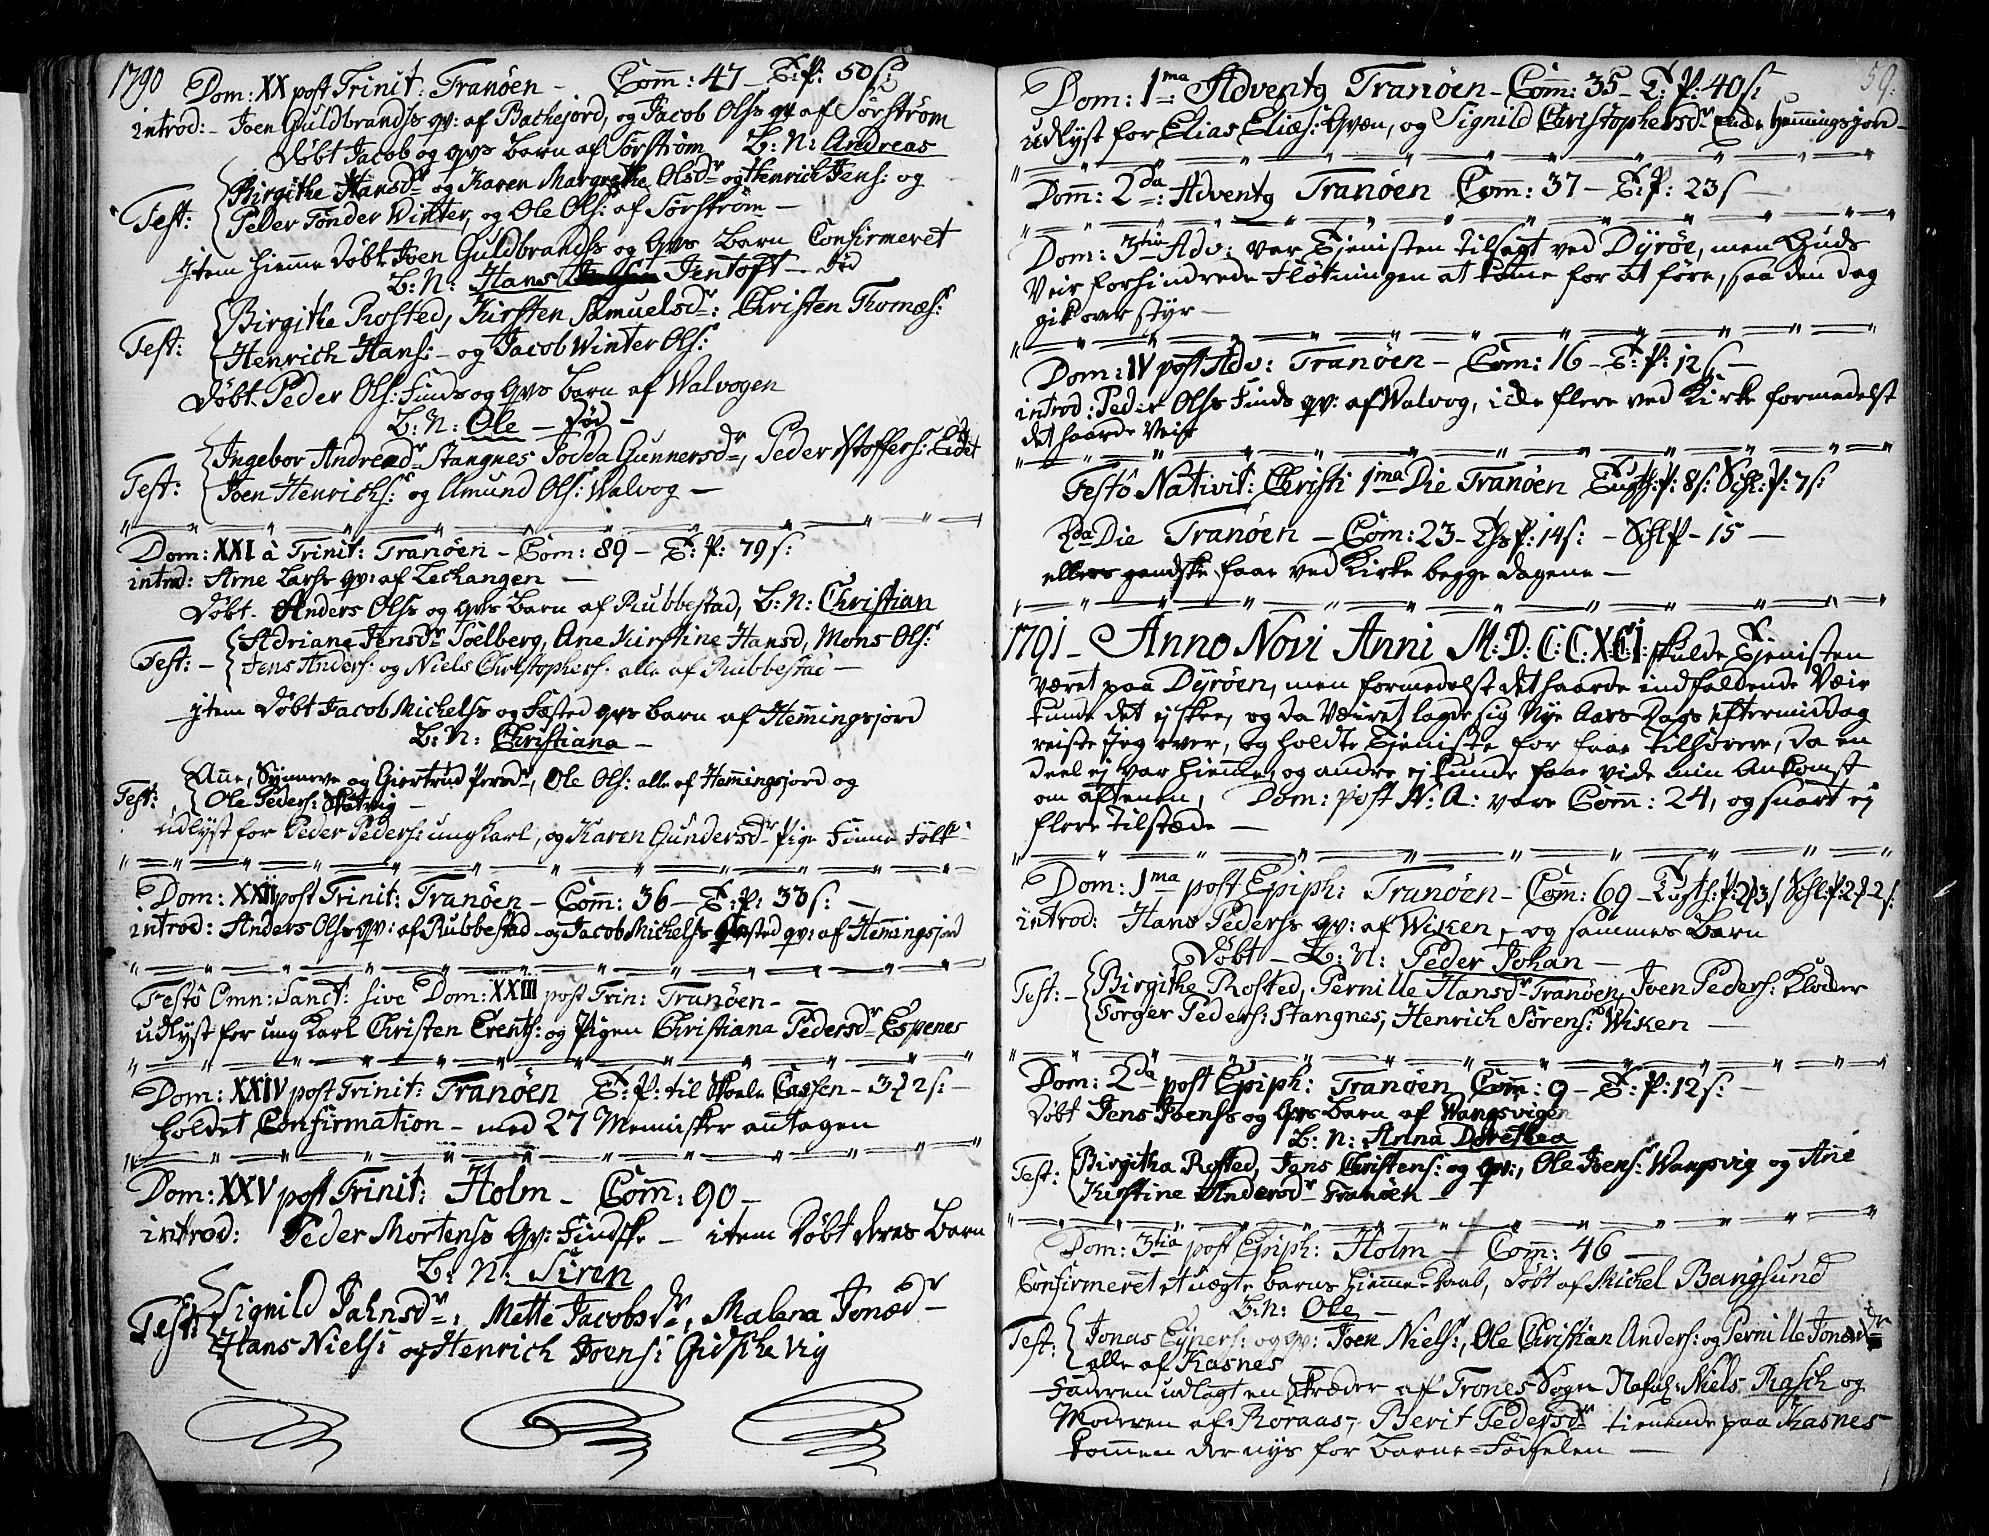 1790 Dom: XX post Trinit: Tranöen - Com̄: 47 - T: P: 50 s:
introd: - Joen Guldbrandhs qv: af Bakkejord, og Jacob Olhs qv af Sörström
Döbt Jacob og qvs barn af Sörström B: N: Andreas
Birgithe Hansdr og Karen Margrethe Olsdr og Henrich Jens: og
Test: Peder Tönder Winter, og Ole Ols: af Sörström -
Jtem hiemme döbt Joen Guldbrandhs og qvs barn Confirmeret
B: N: Hans Jentoft - död
Birgithe Rosted, Kirsten Samuelsdr: Christen Thomæs:
Test: Henrich Hans: - og Jacob Winter Ols:
Döbt Peder Ols: Finds og qvs barn af Walvogen
B: N: Ole - död -
Ingebor Andreædr Stangnes Todda Gunnersdr, Peder Stoffers: Eidet
Test: Joen Henrichs: og Amund Ols: Walvog -
Dom: XXI à Trinit: Tranöen - Com: 89 - T: P: 79 s:
introd: Arne Larhs qv: af Lechangen -
Döbt Anders Olhs og qvs barn af Rubbestad, B: N: Christian
Adriane Jensdr Söelberg, Ane Kirstine Hansd, Mons Ols:
Test: - Jens Anders: og Niels Christophers: alle af Rubbestad -
jtem döbt Jacob Michelhs og Fæsted qvs barn af Hemmingsjord
B: N: Christiana -
Añe, Synneve og Giertrud Persdr, Ole Ols: alle af Hem̄ingsjord og
Test: Ole Peders: Skatvig -
udlyst for Peder Peders: ungkarl, og Karen Gundersdr Pige Finne Folk -
Dom: XXII post Trinit: Tranöen - Com̄: 36 - T: P: 38 s: -
introd: Anders Olhs qv: af Rubbestad - og Jacob Michelhs Fæsted qv: af Hem̄ingsjord
Festô Omn: Sanct: sive Dom: XXIII post Trin: Tranöen - -
udlyst for ung karl Christen Erents: og Pigen Christiana Pedersdr Espenes
Dom: XXIV post Trinit: Tranöen T: P: til Skole Cassen - 3 ʒ 2 s: -
holdet Confirmation - med 27 Mennisker antagen
Dom: XXV post Trinit: Holm - Com̄: 90 -
introd: Peder Mortens qv: Findske - item Döbt deres barn
B: N: Siren
Signild Jahnsdr:, Mette Jacobsdr, Malena Jonædr -
Test: Hans Niels: og Henrich Joens: Gidske vig
59.
Dom: 1ma: Adventg Tranöen - Com̄: 35 - T: P: 40 s:
udlyst for Elias Eliæs: Qvæn, og Signild Christophersdr Ende Hem̄ingsjord -
Dom̄: 2da: Adventg Tranöen Com̄: 37 - T: P: 23 s -
Dom: 3tia Adv: var Tienisten tilsagt ved Dyröe, men Guds
Veir forhindrede Fløtningen at kom̄e for at före, saa den dag
gik over styr -
Dom: IV post Adv: Tranöen - Com: 16 - T: P: 12 s -
introd: Peder Olhs Finds qv: af Walvog, icke flere ved Kirke formedelst
det haarde Veir
Festô Nativit: Christi 1ma Die Tranöen Tugth: P: 8 s: Schl: P: 7 s:
2da Die Tranöen - Com: 23 - Ths P: 14 s: - Schl P - 15 -
ellers gandske faae ved Kirke begge dagene -
1791 - Anno Novi Anni M: D: C: C: X: C: I: skulde Tienisten
været paa Dyröen, men formedelst det haarde indfaldende Veir
kunde det ej skee, og da Veiret lagde sig Nye Aars Dags Eftermiddag
reiste jeg over, og holdte Tieniste for faae tilhörere, da en
deel ej var hiemme, og andre ej kunde faae vide min ankomst
om aftenen, Dom: post N: A: vare Com̄: 24, og snart ej
flere tilstæde -
Dom: 1ma post Epiph: Tranöen - Com: 69 - Tugth: P: 2 ʒ 3 s Schl: P: 2 ʒ 2 s:
introd: Hans Pederhs qv: af Wiken, og sammes barn
Döbt - B: N: Peder Johan -
Birgithe Rosted, Pernille Hansdr Tranöen, Joen Peders: Klöder
Test: - Torger Peders: Stangnes, Henrich Sörens: Wiken -
Dom: 2da post Epiph: Tranöen Com̄: 9 - T: P: 12 s: -
Döbt Jens Joenhs og qvs barn af Wangsvigen
B: N: Anna Dorethea
Birgitha Rosted, Jens Christens: og qv:, Ole Joens: Wangsvig og Ane
Test: Kirstine Andersdr Tranöen -
Dom: 3tia post Epiph: Holm - Com̄: 46 -
Confirmeret et uægte barns hiemme daab, döbt af Michel Bangsund
B: N: Ole -
Test: Jonas Ejners: og qv: Joen Niels:, Ole Christian Anders: og Pernille Jonædr
alle af Kasnes -
Faderen udlagt en Skræder af Trones Sogn Nafnl: Niels Rasch og
Moderen af Roraas -, Berit Pedersdr tienende paa Kasnes
kommen der nys for Barne=Födselen -